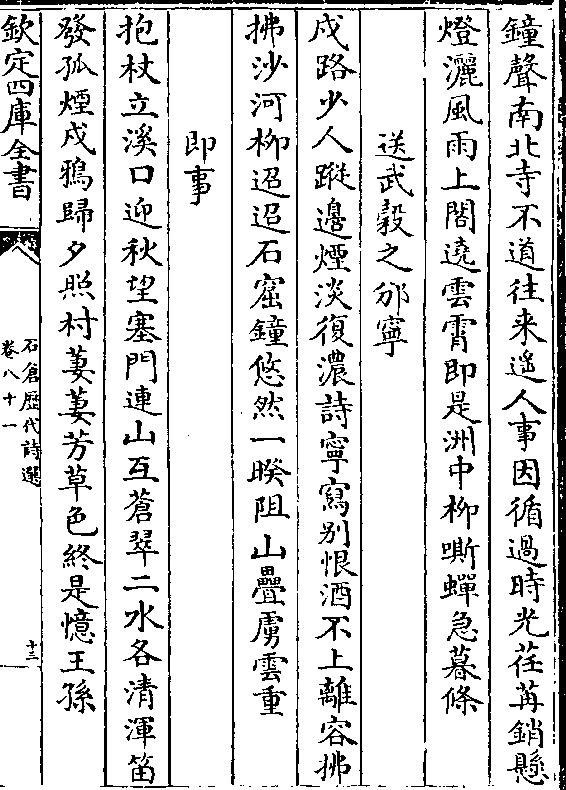 鐘聲南北寺不道往来遥人事因循過時光荏苒銷懸
燈灑風雨上閣遶雲霄即是洲中柳嘶蟬急暮條
送武縠之邠寧
戍路少人蹤邊煙淡復濃詩寧寫别恨酒不上離容拂
拂沙河柳迢迢石窟鐘悠然一暌阻山疊虜雲重
即事
抱杖立溪口迎秋望塞門連山互蒼翠二水各清渾笛
發孤煙戍鴉歸夕照村萋萋芳草色終是憶王孫
欽定四庫全書
石倉歷代詩選
卷八十一
十三